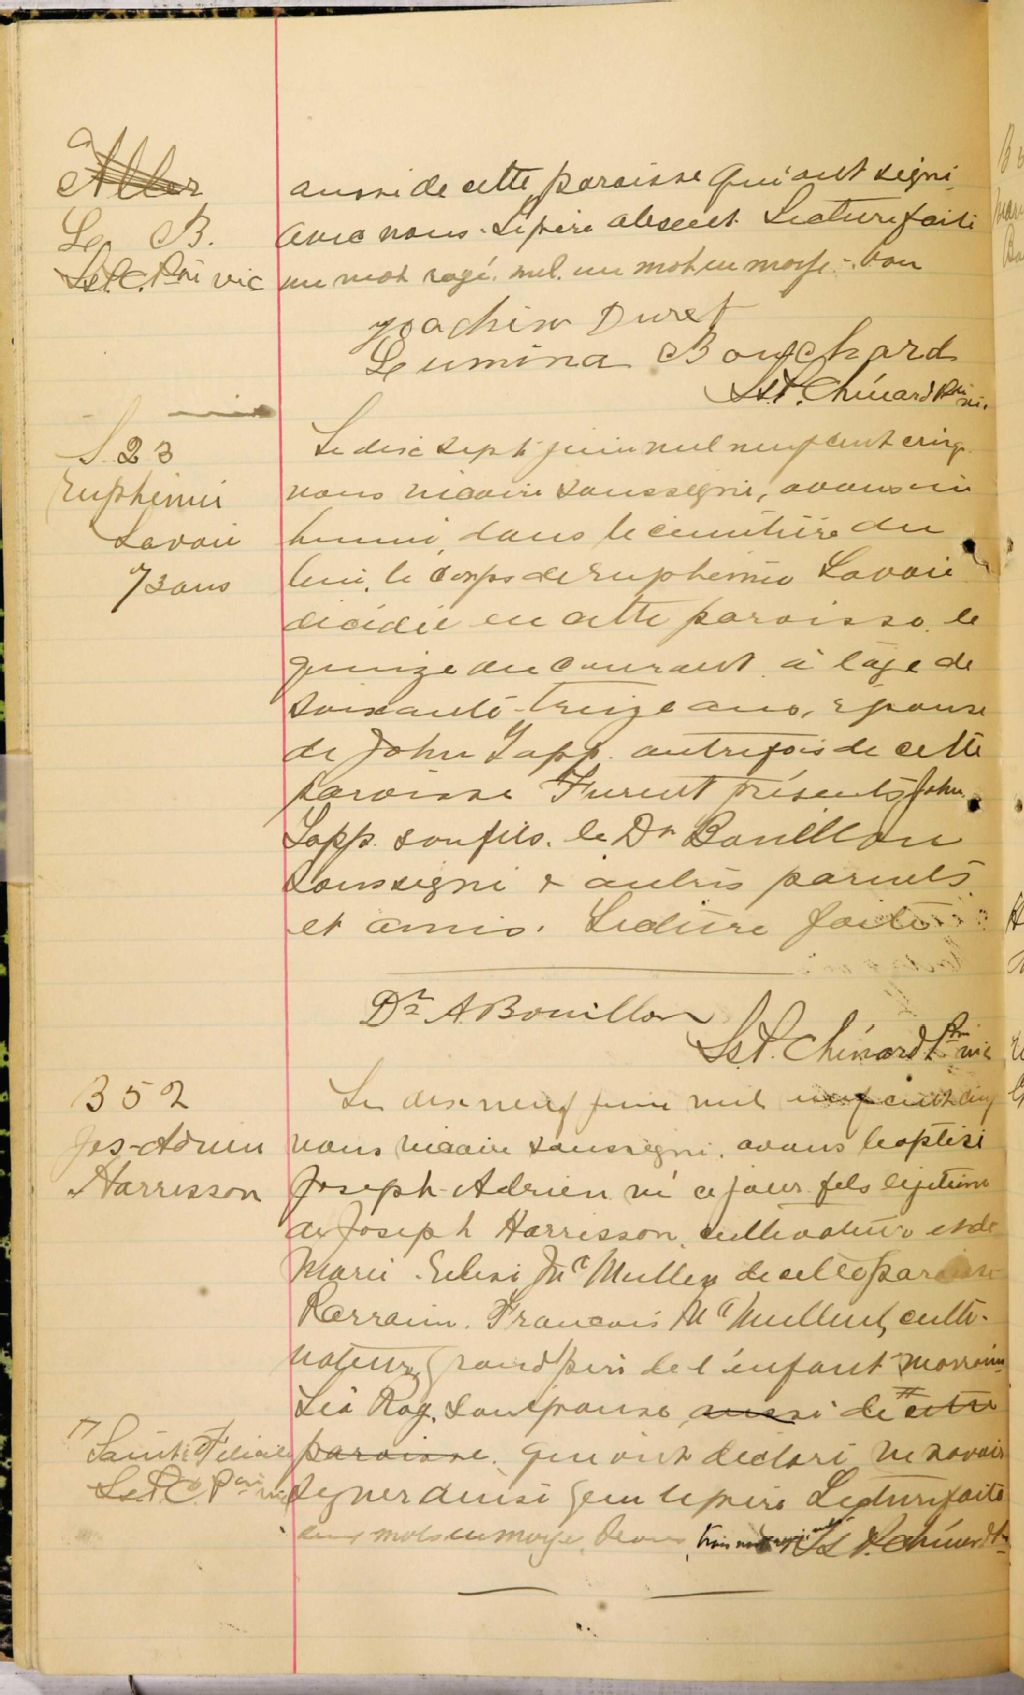 Le B.
Ls. P. C. Ptre vic
aussi de cette paroisse qui ont signé
avec nous. Le père absent. Lecture faite
un mot rayé nul. un mot en marge bon
Joachim Duret
Lumina Bouchard
Ls. P. Chénard Ptre vic.
S. 23
Euphémie
Lavoie
73 ans
Le dix sept juin mil neuf cent cinq
nous vicaire soussigné, avons in
humé, dans le cimetière du
lieu, le corps de Euphémie Lavoie
décédée en cette paroisse, le
quinze du courant, à l'âge de
soixante-treize ans, épouse
de John Lapp. autrefois de cette
paroisse Furent présents, John
Lapp. son fils, le Dr Bouillon
soussigné & autres parents
et amis. Lecture faite
Dr A Bouillon
Ls. P. Chénard Ptre vic
B 52
Jos-Adrien
Harrisson
Le dix neuf juin mil neuf cent cinq
nous vicaire soussigné, avons baptisé
Joseph-Adrien né ce jour fils légitime
de Joseph Harrisson, cultivateur et de
Marie Mc Mullen de cette paroisse
Parrain. François Mc Mullen, culti-
vateur, Grand père de l'enfant marraine
Léa Roy, son épouse, aussi de # cette
paroisse. qui ont déclaré ne savoir
signer ainsi que le père Lecture faite
mots en marge bons, trois mots rayés nuls Ls P. Chénard Ptre
# Sainte Félicité
Ls. P. C. Ptre vic